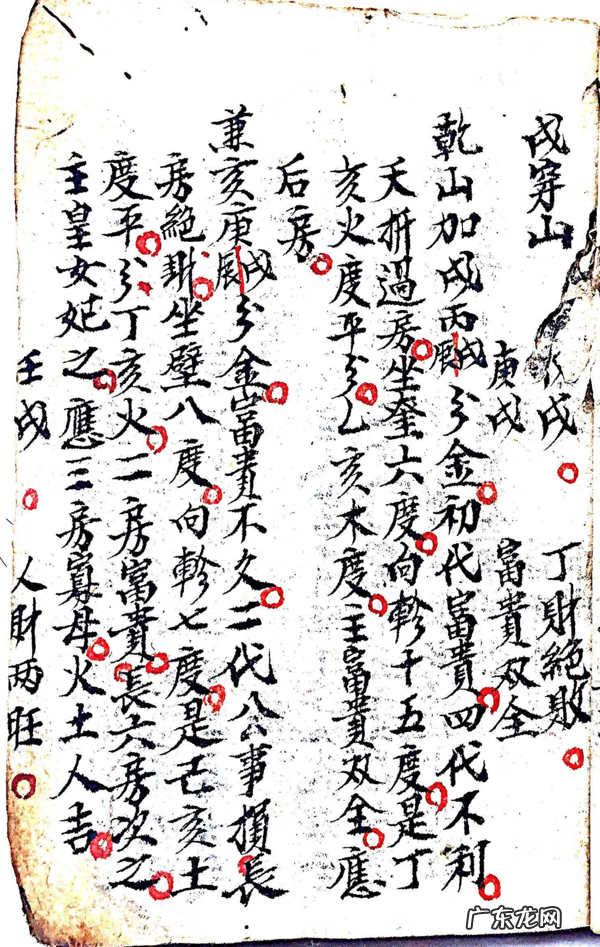 戌穿山
戌戌 丁財絕敗
庚戌 富貴双全
乾山加戌丙戌辰分金初代富貴四代不利
夭折過房坐奎六度向軫十五度是丁
亥火度平分乙亥木度主富貴双全應
后房
兼亥庚戌辰分金富貴不久二代公事損長
房絕財坐壁八度向軫七度是己亥土
度平分丁亥火二房富貴長六房次之
主皇女妃之應三房寡母火土人吉
壬戌 人財两旺
广东龙网